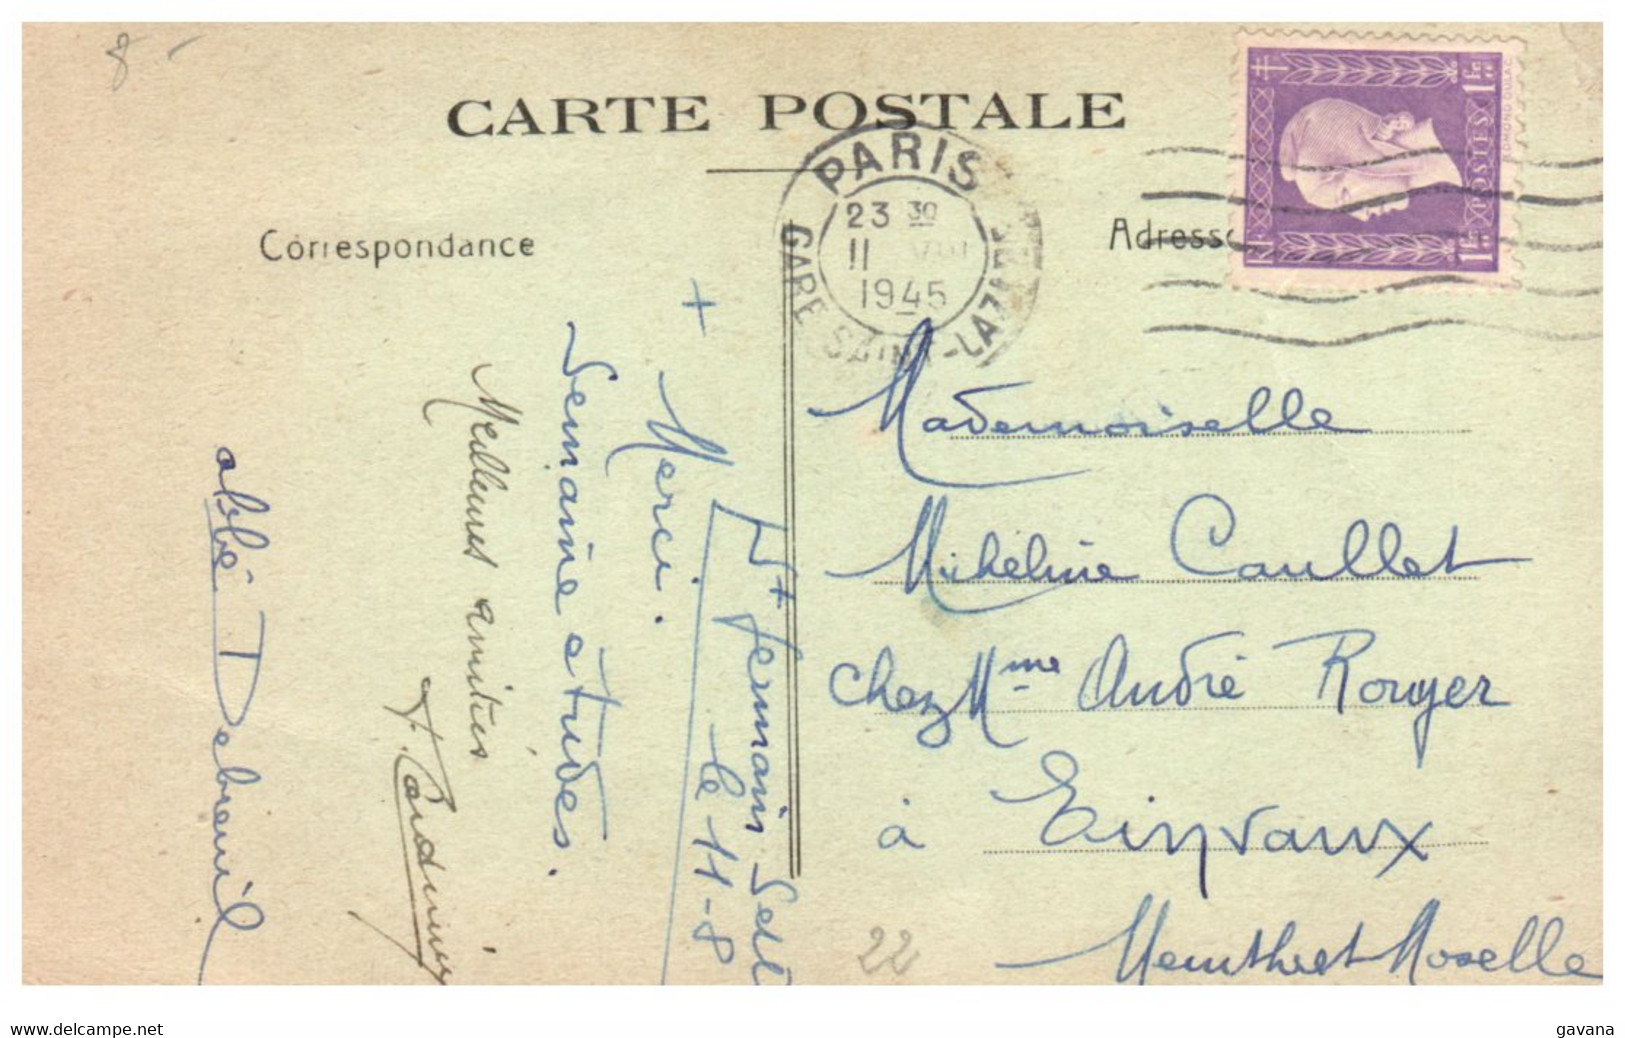 8 -
CARTE POSTALE
PARIS
23 30
11 VIII
1945
GARE SAINT-LAZARE
1F 50
POSTES
Correspondance
Adresse
+
St Germain
le 11-8
Merci.
Semaine études.
Meilleures amitiés
abbé
Mademoiselle
Micheline Caullet
chez Mme André Rouyer
à Einvaux
Meurthe et Moselle
22
www.delcampe.net
gavana